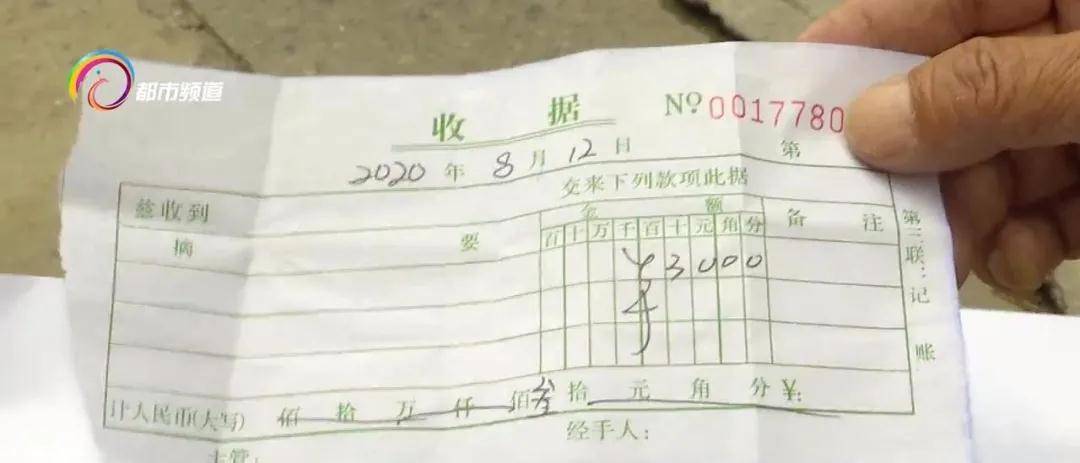 都市频道
收 据 Nº 0017780
2020 年 8 月 12 日 第
兹收到 交来下列款项此据
摘 要 金 额 备 注
百 十 万 千 百 十 元 角 分
¥ 3 0 0 0
计人民币(大写) 佰 拾 万 仟 佰 叁 拾 元 角 分 ¥:
主管: 经手人:
第三联:记账